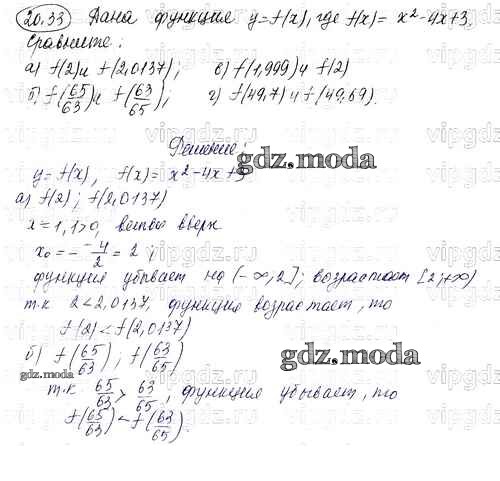 20.33 Дана функция y=f(x), где f(x)= x²-4x+3.
Сравните:
а) f(2) и f(2,0137); в) f(1,999) и f(2)
б) f(65/63) и f(63/65); г) f(49,7) и f(49,69).
Решение:
gdz.moda
y=f(x), f(x)= x²-4x+3
а) f(2); f(2,0137)
x=1, 1>0, ветви вверх
x₀=- -4/2 = 2;
функция убывает на (-∞;2]; возрастает [2;+∞)
т.к 2<2,0137, функция возрастает, то
f(2)<f(2,0137)
б) f(65/63); f(63/65)
gdz.moda
т.к 65/63 > 63/65, функция убывает, то
f(65/63)<f(63/65).